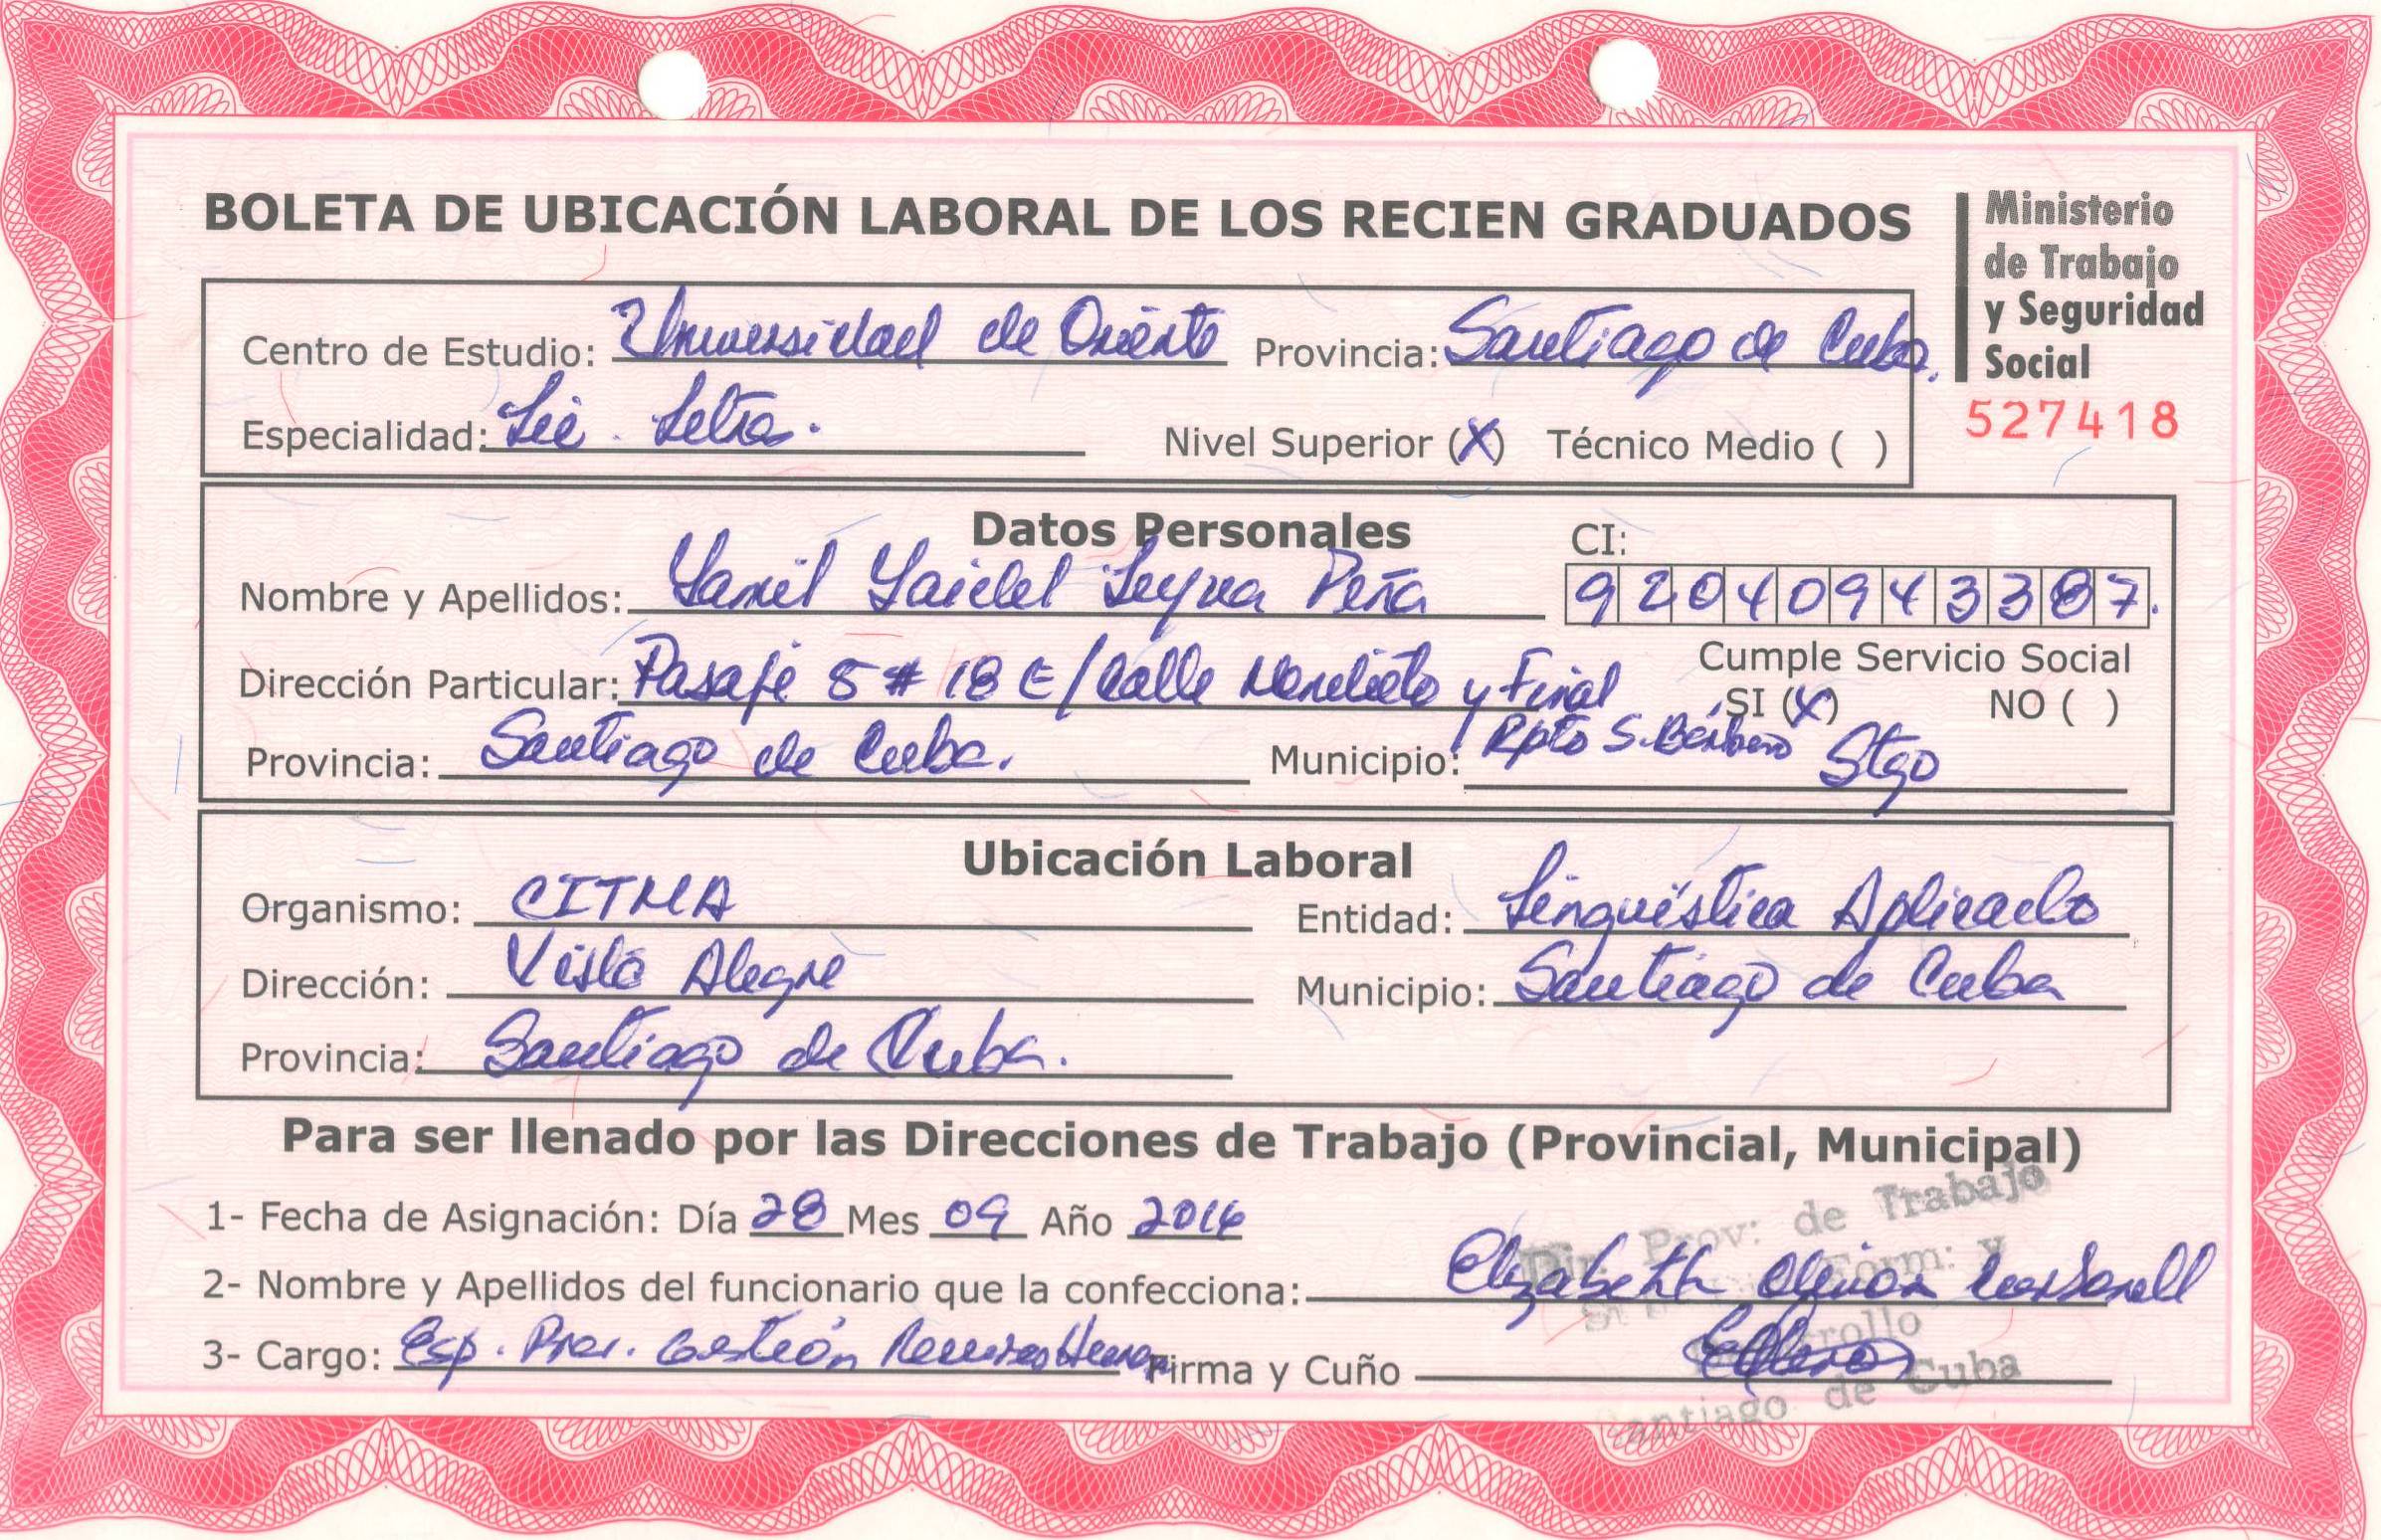 BOLETA DE UBICACIÓN LABORAL DE LOS RECIEN GRADUADOS
Ministerio
de Trabajo
y Seguridad
Social
527418
Centro de Estudio: Universidad de Oriente Provincia: Santiago de Cuba.
Especialidad: Lic. Letra. Nivel Superior (X) Técnico Medio ( )
Datos Personales
CI:
Nombre y Apellidos: Yanil Yaidel Leyva Peña 92040943387.
Cumple Servicio Social
Dirección Particular: Pasaje 5 # 18 E/ Calle y Final
SI (X) NO ( )
Rpto S. Bárbara
Provincia: Santiago de Cuba. Municipio: Stgo
Ubicación Laboral
Organismo: CITMA Entidad: Lingüística Aplicada
Dirección: Vista Alegre Municipio: Santiago de Cuba
Provincia: Santiago de Cuba.
Para ser llenado por las Direcciones de Trabajo (Provincial, Municipal)
1- Fecha de Asignación: Día 28 Mes 09 Año 2016
Dir. Prov: de Trabajo
Form: y
2- Nombre y Apellidos del funcionario que la confecciona: Elizabeth
3- Cargo: Esp. Gestión Recursos Firma y Cuño
Santiago de Cuba